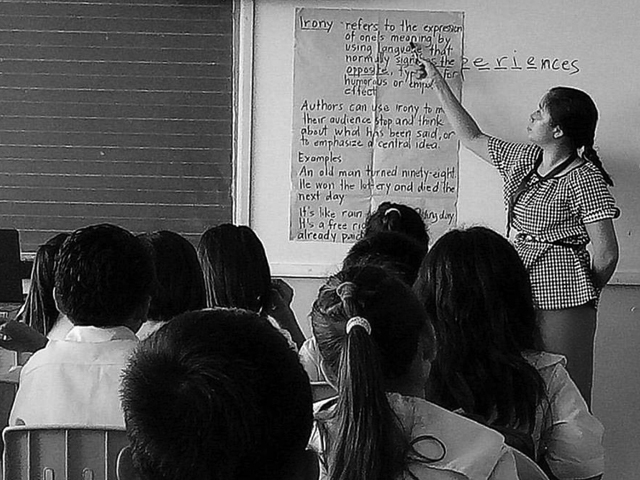 Irony refers to the expression
of one's meaning by
using language that
normally signifies the
opposite, typ for
humorous or
effect
periences
Authors can use irony to m
their audience stop and think
about what has been said, or
to emphasize a central idea.
Examples
An old man turned ninety-eight.
He won the lottery and died the
next day
It's like rain day
It's a free ri
already paid